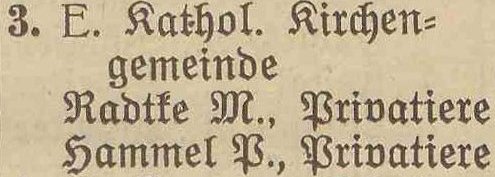 3. E. Kathol. Kirchen-
gemeinde
Radtke M., Privatiere
Hammel P., Privatiere